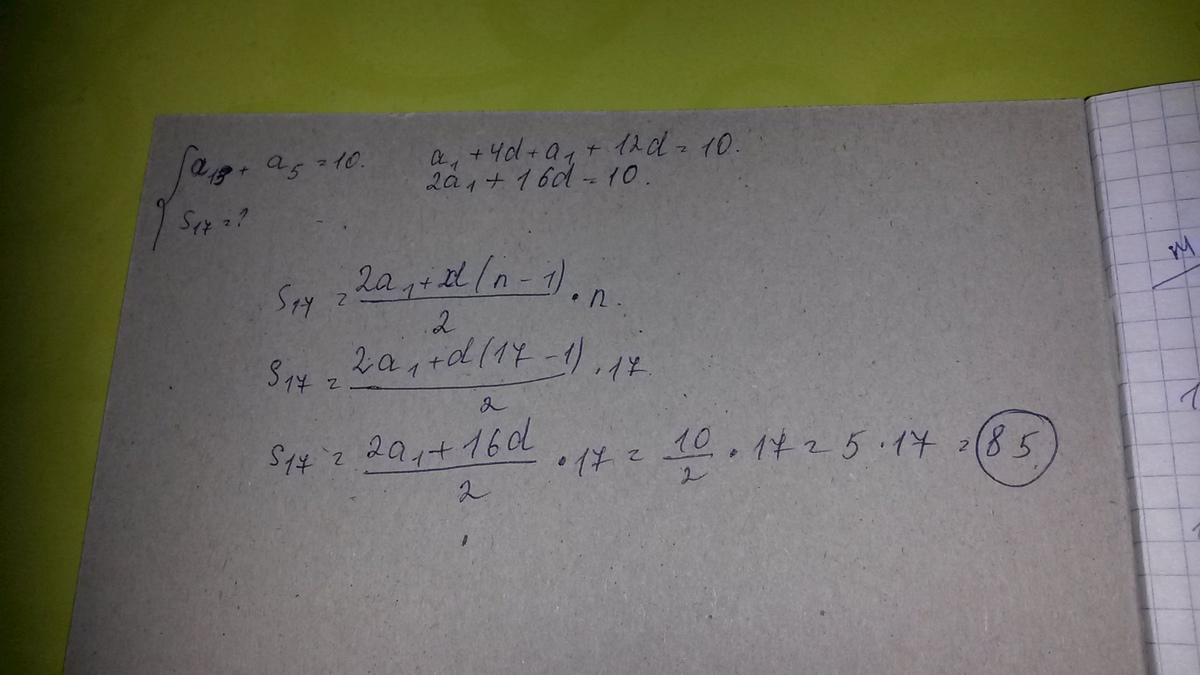 a₁₃ + a₅ = 10.
S₁₇ = ?
a₁ + 4d + a₁ + 12d = 10.
2a₁ + 16d = 10.
S₁₇ = (2a₁ + d(n - 1))/2 · n.
S₁₇ = (2a₁ + d(17 - 1))/2 · 17.
S₁₇ = (2a₁ + 16d)/2 · 17 = 10/2 · 17 = 5 · 17 = 85.
м
1